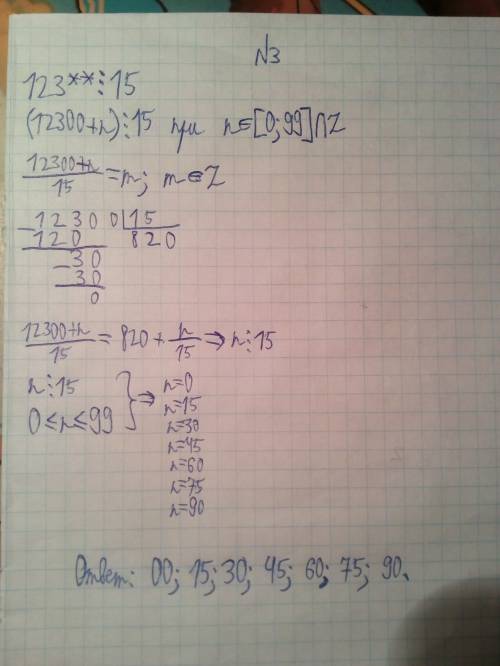 №3
123**⋮15
(12300+n)⋮15 при n∈[0;99]∩Z
12300+n/15=m; m∈Z
12300|15
120 820
30
30
0
12300+n/15=820+n/15⇒n⋮15
n⋮15
0≤n≤99
}⇒ n=0
n=15
n=30
n=45
n=60
n=75
n=90
Ответ: 00; 15; 30; 45; 60; 75; 90.